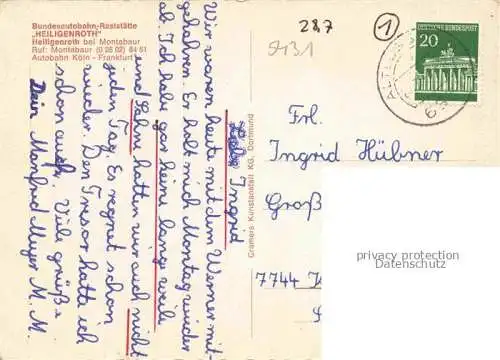 Bundesautobahn-Raststätte
„HEILIGENROTH"
Heiligenroth bei Montabaur
Ruf: Montabaur (0 26 02) 84 61
Autobahn Köln - Frankfurt
287
1
DEUTSCHE BUNDESPOST
20
Ingrid
Wir waren heute mit dem Werner mit-
gefahren. Er holt mich Montag wieder
ab. Ich habe gar keine lange weile
und hatten wir auch nicht
jeden Tag. Es regnet schon
wieder. Den Tresor hatte ich
schon auch. Viele grüße
Dein Manfred Meyer M. M.
Cramers Kunstanstalt KG, Dortmund
Fr.
Ingrid Hübner
Groß
7744
privacy protection
Datenschutz